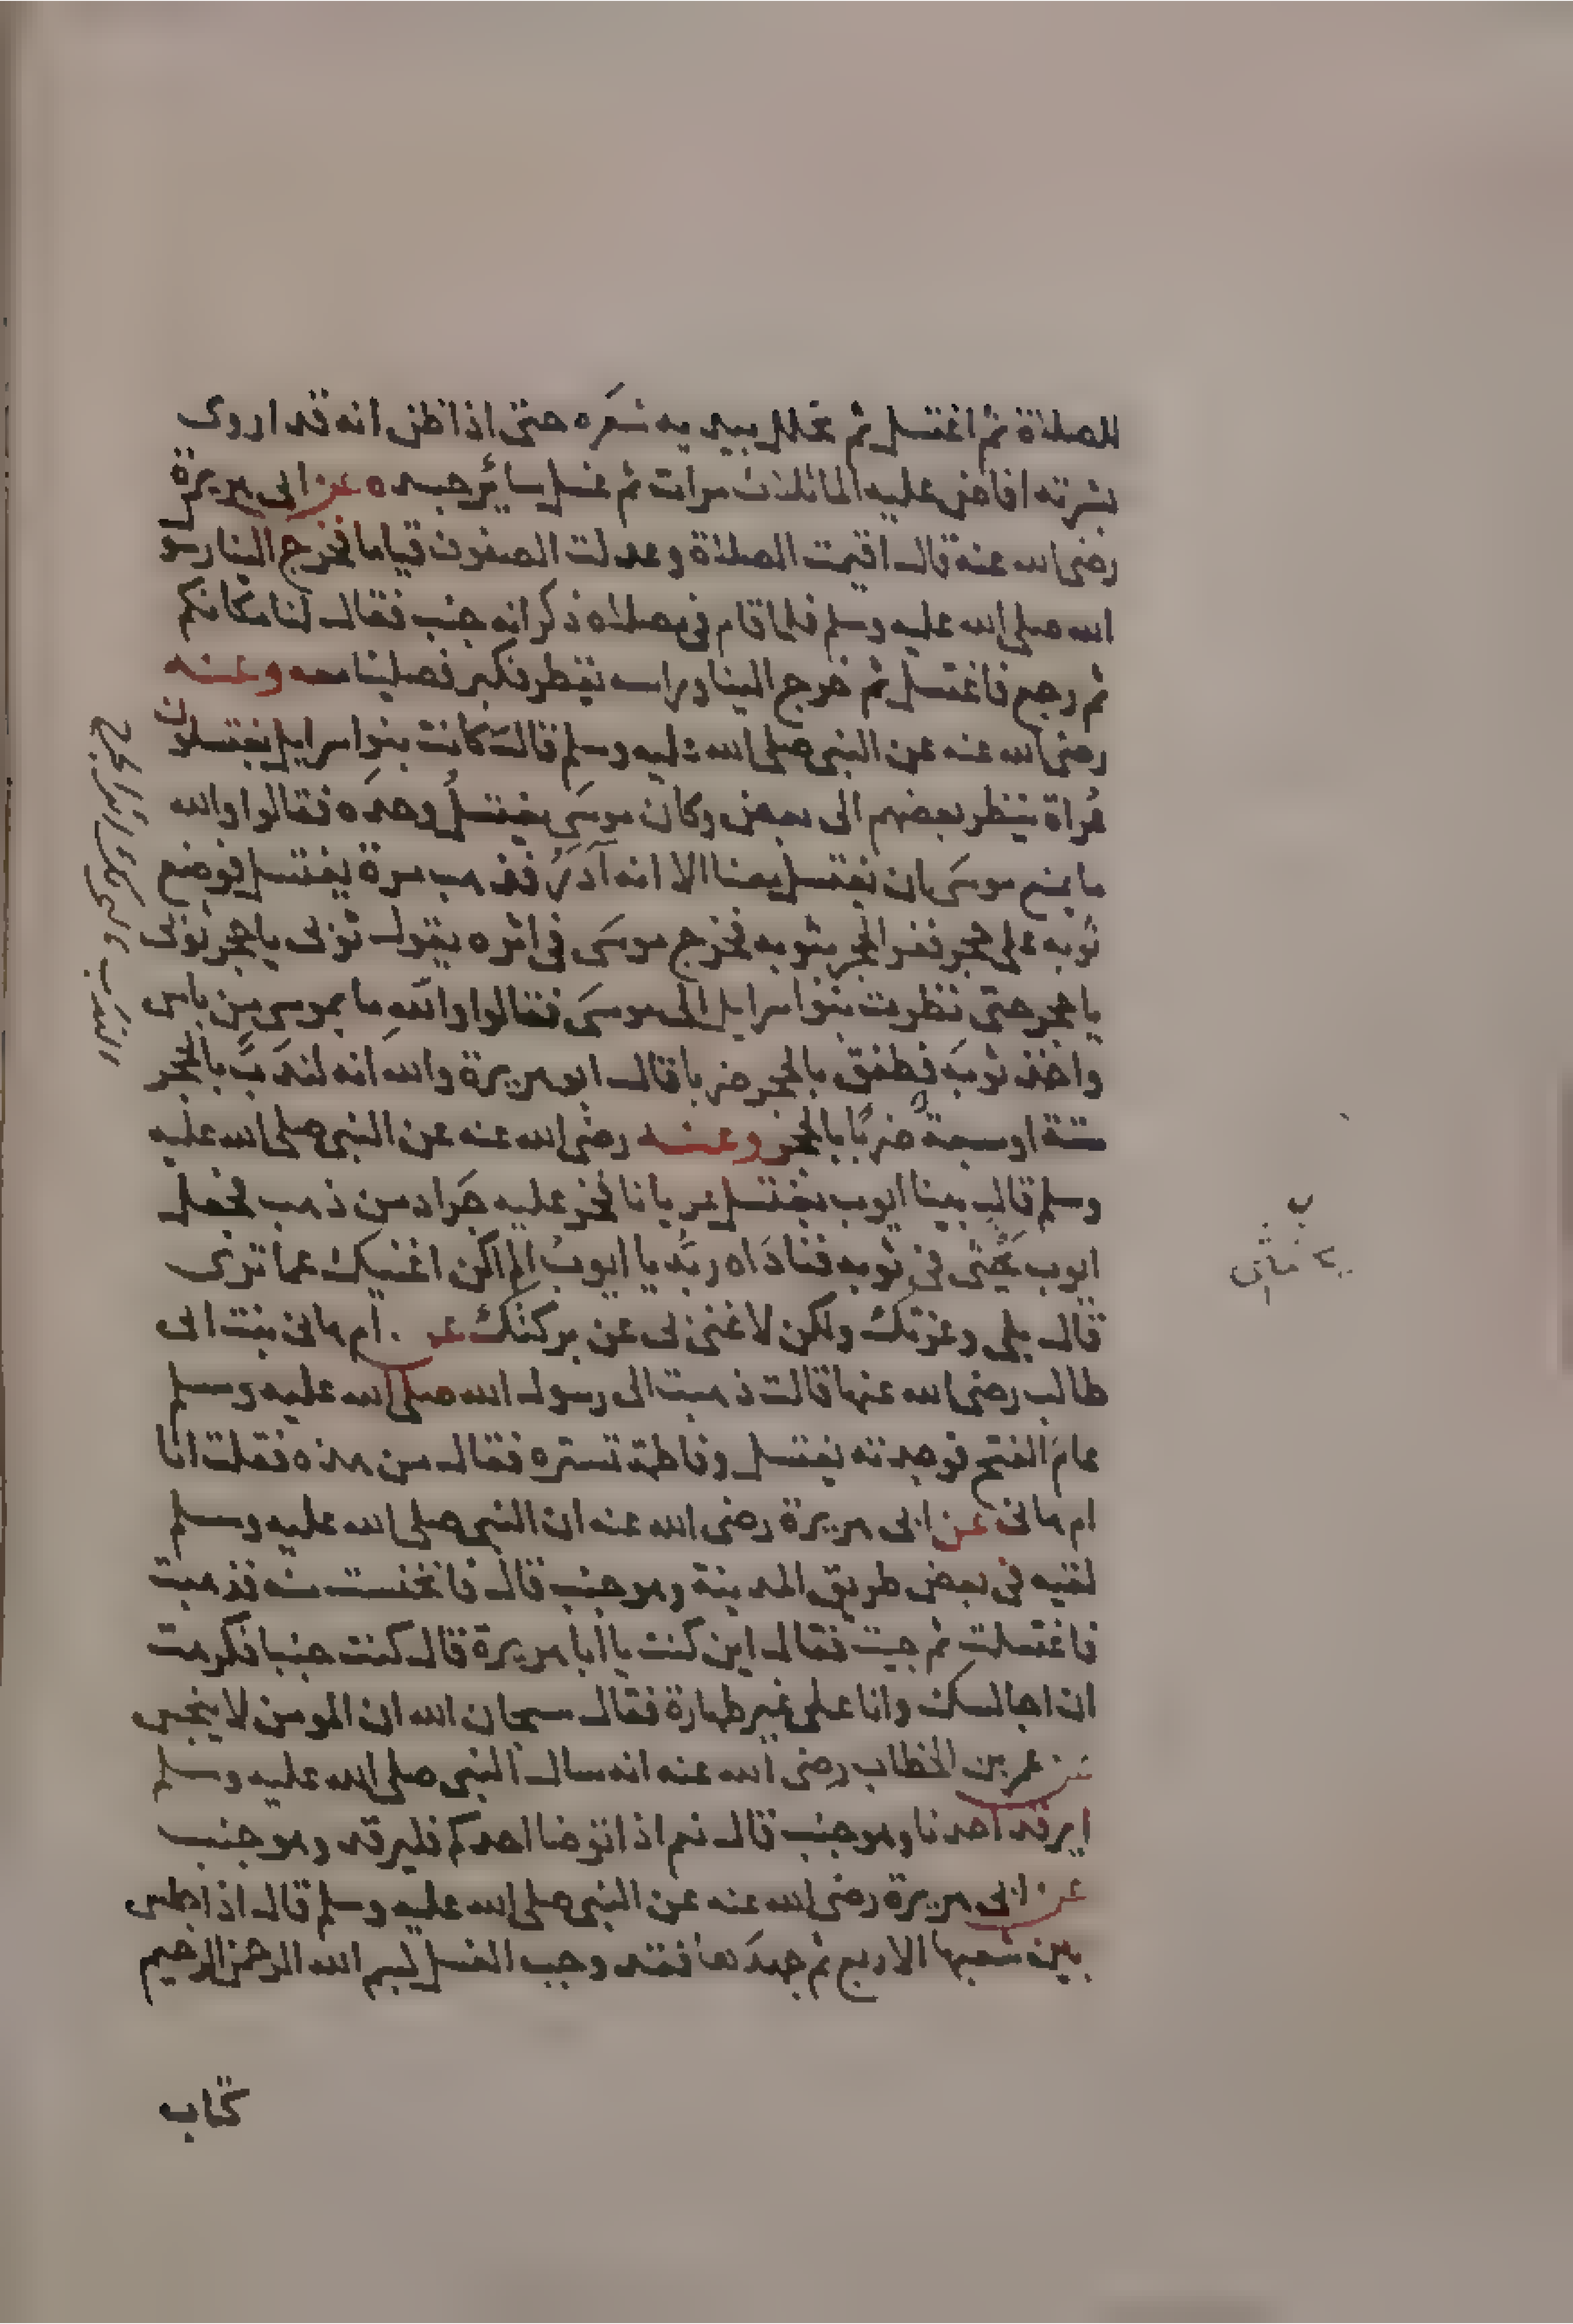 للصلاة ثم اغتسل ثم تخلل بيديه شعره حتى اذا ظن انه قد اروى
بشرته افاض عليه الماثلاث مرات ثم غسل سائر جسده عن ابى هريرة
رضى الله عنه قال اقيمت الصلاة وعدلت الصفوف قياما فخرج الينا رسول
الله صلى الله عليه وسلم فلما قام فى مصلاه ذكر انه جنب فقال لنا مكانكم
ثم رجع فاغتسل ثم خرج الينا وراسه تقطر فكبر فصلينا معه وعنه
رضى الله عنه عن النبى صلى الله عليه وسلم قال كانت بنوا سرايل يغتسلون
عراة ينظر بعضهم الى بعض وكان موسى يغتسل وحده فقالوا والله
ما يمنع موسى ان يغتسل معنا الا انه آدر فذهب مرة يغتسل فوضع
ثوبه على حجر ففر الحجر بثوبه فخرج موسى فى اثره يقول ثوبى يا حجر ثوبى
يا حجر حتى نظرت بنوا سرايل الى موسى فقالوا والله ما بموسى من باس
واخذ ثوبه فطفق بالحجر ضربا قال ابو هريرة والله انه لندب بالحجر
ستة او سبعة ضربا بالحجر وعنه رضى الله عنه عن النبى صلى الله عليه
وسلم قال بينا ايوب يغتسل عريانا فخر عليه جراد من ذهب فجعل
ايوب يحتثى فى ثوبه فناداه ربه يا ايوب الم اكن اغنيك عما ترى
قال بلى وعزتك ولكن لا غنى لى عن بركتك عن ام هانى بنت ابى
طالب رضى الله عنها قالت ذهبت الى رسول الله صلى الله عليه وسلم
عام الفتح فوجدته يغتسل وفاطمة تستره فقال من هذه فقلت انا
ام هانى عن ابى هريرة رضى الله عنه ان النبى صلى الله عليه وسلم
لقيه فى بعض طريق المدينة وهو جنب قال فانخنست منه فذهبت
فاغتسلت ثم جيت فقال اين كنت يا ابا هريرة قال كنت جنبا فكرهت
ان اجالسك وانا على غير طهارة فقال سبحان الله ان المومن لا ينجس
عن عمر بن الخطاب رضى الله عنه انه سال النبى صلى الله عليه وسلم
ايرقد احدنا وهو جنب قال نعم اذا توضا احدكم فليرقد وهو جنب
عن ابى هريرة رضى الله عنه عن النبى صلى الله عليه وسلم قال اذا جلس
بين شعبها الاربع ثم جهدها فقد وجب الغسل بسم الله الرحمن الرحيم
كتاب